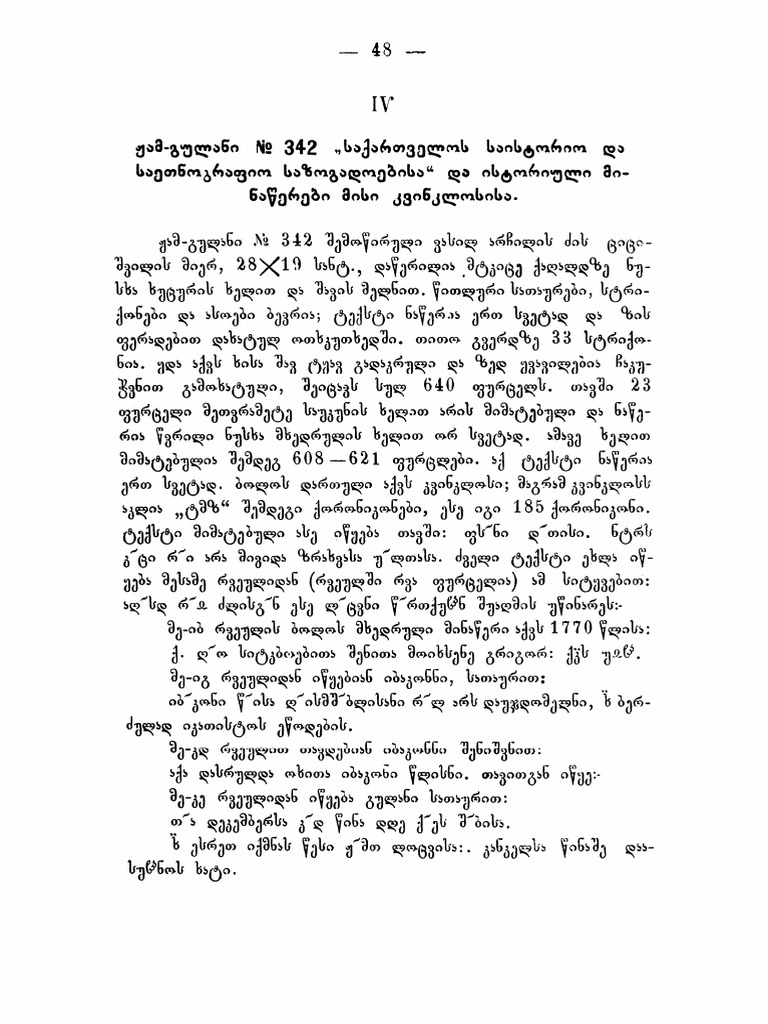 — 48 —
IV
ჟამ-გულანი № 342 „საქართველოს საისტორიო და
საეთნოგრაფიო საზოგადოებისა“ და ისტორიული მი-
ნაწერები მისი კვინკლოსისა.
ჟამ-გულანი № 342 შემოწირული ვასილ არჩილის ძის ციცი-
შვილის მიერ, 28×19 სანტ., დაწერილია მტკიცე ქაღალდზე ნუ-
სხა ხუცურის ხელით და შავის მელნით. წითლური სათაურები, სტრი-
ქონები და ასოები ბევრია; ტექსტი ნაწერია ერთ სვეტად და ზის
ფერადებით დახატულ ოთხკუთხედში. თითო გვერდზე 33 სტრიქო-
ნია. ყდა აქვს ხისა შავ ტყავ გადაკრული და ზედ ყვავილების ჩაკუ-
ჭვნით გამოხატული, შეიცავს სულ 640 ფურცელს. თავში 23
ფურცელი მეთვრამეტე საუკუნის ხელით არის მიმატებული და ნაწე-
რია წვრილი ნუსხა მხედრულის ხელით ორ სვეტად. ამავე ხელით
მიმატებულია შემდეგ 608—621 ფურცლები. აქ ტექსტი ნაწერია
ერთ სვეტად. ბოლოს დართული აქვს კვინკლოსი; მაგრამ კვინკლოსს
აკლია „ტმზ“ შემდეგი ქორონიკონები, ესე იგი 185 ქორონიკონი.
ტექსტი მიმატებული ასე იწყება თავში: ფს˜ნი დ˜თისი. ნტრს
კ˜ცი რ˜ი არა მივიდა ზრახვასა უ˜ლთასა. ძველი ტექსტი ეხლა იწ-
ყება მესამე რვეულიდან (რვეულში რვა ფურცელია) ამ სიტყვებით:
აღ˜სდ რ˜ჲ ძლისგ˜ნ ესე ღ˜ცვნი წ˜რთქუჱნ შუაღმის უწინარეს:-
მე-იბ რვეულის ბოლოს მხედრული მინაწერი აქვს 1770 წლისა:
ქ. ღ˜ო სიტკბოებითა შენითა მოიხსენე გრიგორ:
მე-იგ რვეულიდან იწყებიან იბაკონნი, სათაურით:
იბ˜კონი წ˜ისა ღ˜ისმშ˜ბლისანი რ˜ლ არს დაუჯდომელნი, ხ ბერ-
ძულად იკათისტოს ეწოდების.
მე-კდ რვეულით თავდებიან იბაკონნი შენიშვნით:
აქა დასრულდა ოხითა იბაკონი წლისნი. თავითგან იწყე:-
მე-კე რვეულიდან იწყება გულანი სათაურით:
თ˜ა დეკემბერსა კ˜დ წინა დღე ქ˜ეს შ˜ბისა.
ხ ესრეთ იქმნას წესი ჟ˜მთ ლოცვისა:. კანკელსა წინაშე დაა-
სუჱნოს ხატი.